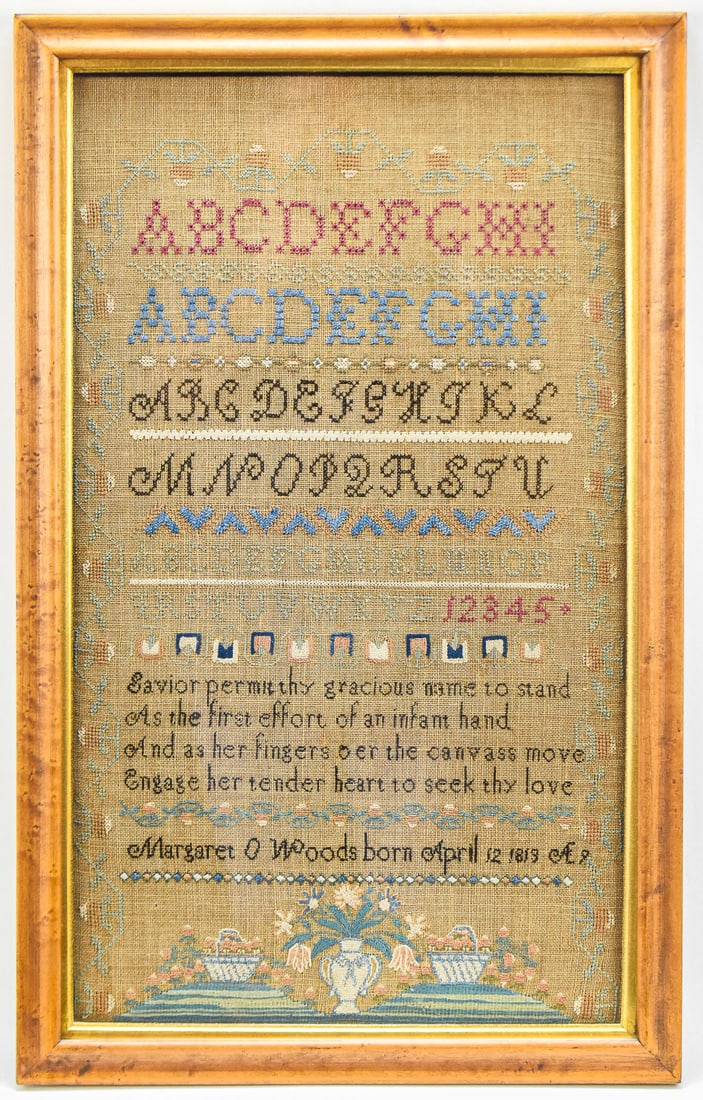 ABCDEFGHI
ABCDEFGHI
ABCDEFGHIKL
MNOPQRSTU
ABCDEFGHIKLMNOP
12345
Savior permit thy gracious name to stand
As the first effort of an infant hand
And as her fingers oer the canvass move
Engage her tender heart to seek thy love
Margaret O Woods born April 12 1813 Æ 9